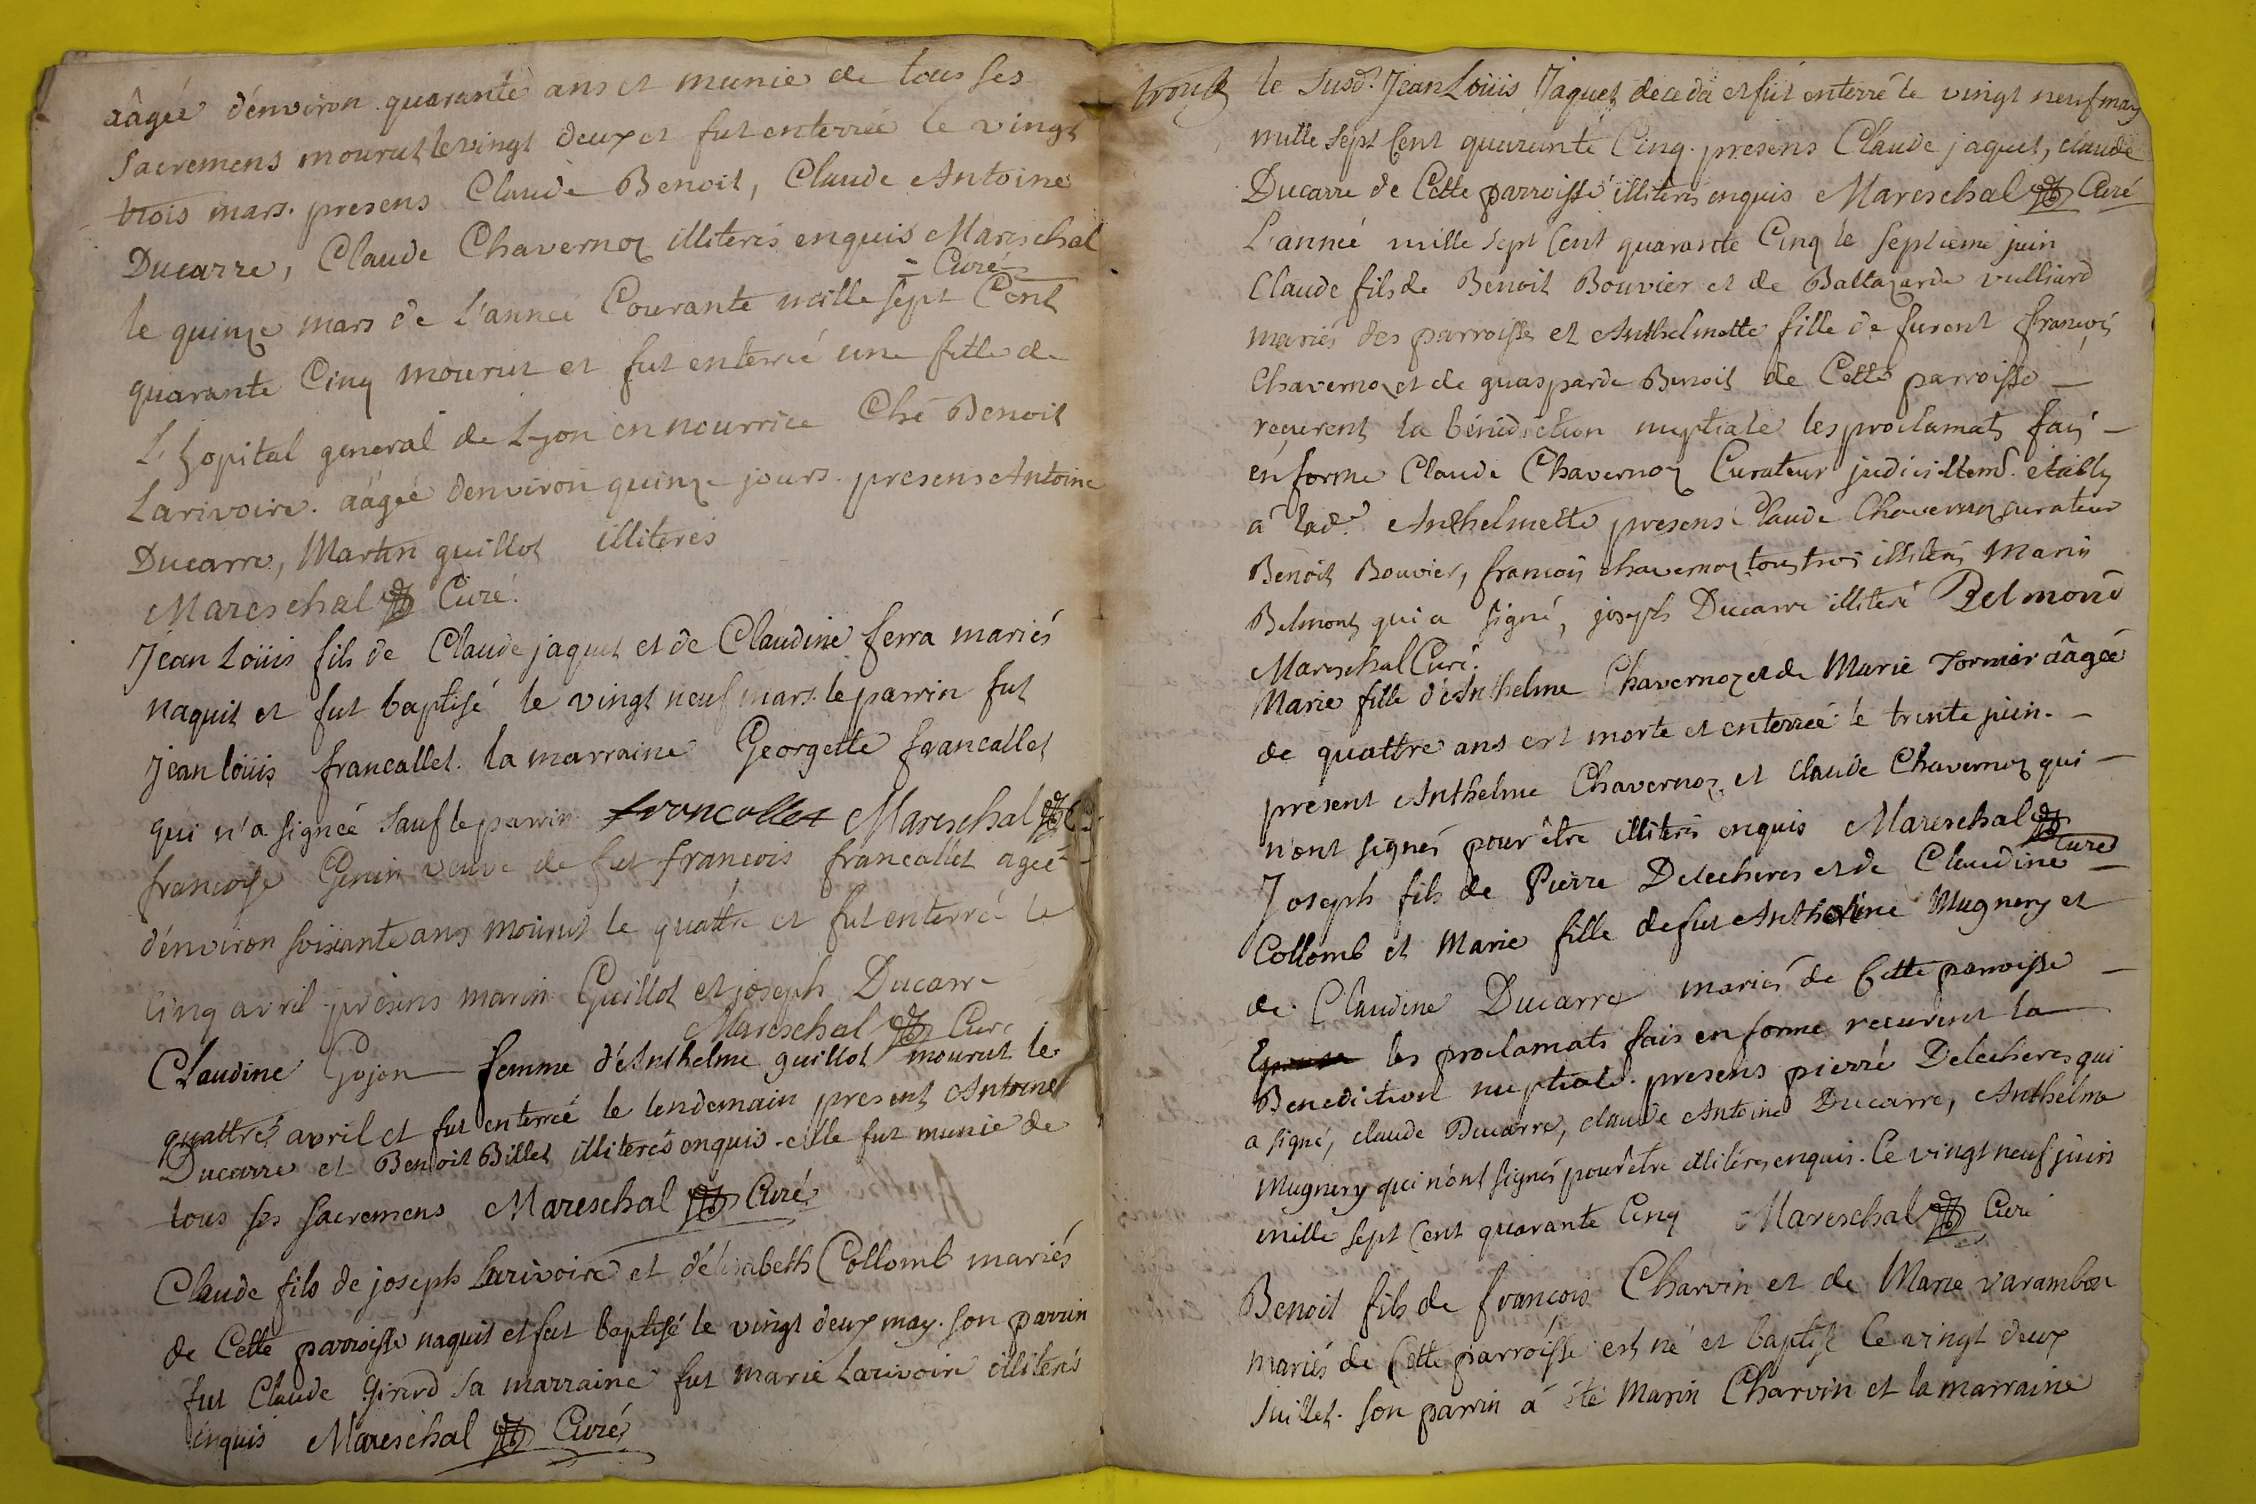 aâgée d'environ quarante ans et munie de tous ses
sacremens mourut le vingt deux et fut enterrée le vingt
trois mars. presens Claude Benoit, Claude Antoine
Ducarre, Claude Chavernoz illiterés enquis Mareschal
Curé
le quinze mars de L'année Courante mille sept Cent
quarante Cinq mourut et fut enterré une fille de
L'hopital general de Lyon en nourrice Ché Benoit
Larivoire. aâgée d'environ quinze jours. presens Antoine
Ducarre, Martin guillot illiterés
Mareschal Curé.
Jean Loüis fils de Claude jaquet et de Claudine ferra mariés
naquit et fut baptisé le vingt neuf mars. le parrin fut
Jean loüis francallet. la marraine Georgette francallet
qui n'a signée sauf le parrin francallet Mareschal
francoise Genin veuve de fut francois francallet agée
d'environ soixante ans mourut le quattre et fut enterrée le
Cinq avril presens marin Guillot et joseph Ducarre
Mareschal Curé
Claudine Gojon femme d'Anthelme guillot mourut le
quattre avril et fut enterrée le lendemain present Antoine
Ducarre et Benoit Billet illiterés enquis. elle fut munie de
tous ses sacremens Mareschal Curé
Claude fils de joseph Larivoire et d'élisabeth Collomb mariés
de Cette parroisse naquit et fut baptisé le vingt deux may. son parrin
fut Claude Girerd sa marraine fut marie Larivoire illiterés
enquis Mareschal Curé
le susd. Jean Loüis Jaquet deceda et fut enterré le vingt neuf may
mille sept Cent quarante Cinq. presens Claude jaquet, claude
Ducarre de Cette parroisse illiterés enquis Mareschal Curé
L'année mille sept Cent quarante Cinq le septieme juin
Claude fils de Benoit Bouvier et de Baltazarde vulliard
mariés des parroisse et Anthelmette fille de furent francois
Chavernoz et de guasparde Benoit de Cette parroisse
recurent la bénédiction nuptiale les proclamats fais
en forme Claude Chavernoz Curateur etably
a lad.e Anthelmette presens Claude Chavernoz curateur
Benoit Bouvier, francois chavernoz tous trois illiterés Marin
Belmont qui a signé, joseph Ducarre illiteré Belmond
Mareschal Curé.
Marie fille d'Anthelme Chavernoz et de Marie Tornier aâgée
de quattre ans est morte et enterrée le trente juin.
present Anthelme Chavernoz et claude Chavernoz qui
n'ont signés pour être illiterés enquis Mareschal
Curé
Joseph fils de Pierre Delecheres et de Claudine
Collomb et Marie fille de fut Anthelme Mugnery et
de Claudine Ducarre mariés de Cette parroisse
les proclamats fais en forme recurent la
Benediction nuptiale. presens pierre Delecheres qui
a signé, claude Ducarre, claude Antoine Ducarre, Anthelme
Mugnery qui n'ont signés pour être illiterés enquis. le vingt neuf juin
mille sept Cent quarante Cinq Mareschal Curé
Benoit fils de francois Charvin et de Marie varambon
mariés de Cette parroisse est né et baptisé le vingt deux
Juillet. son parrin à été Marin Charvin et la marraine